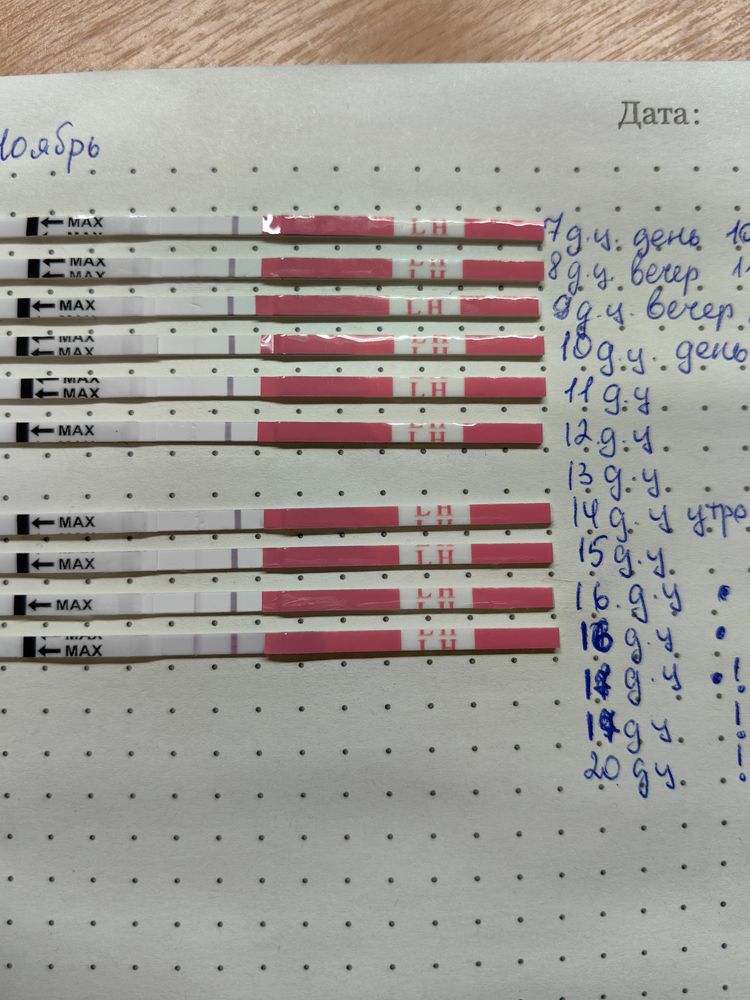 Дата:
Ноябрь
MAX LH 7 д.ц. день 10
MAX MAX LH LH 8 д.ц. вечер 11
MAX LH 9 д.ц. вечер
MAX MAX LH LH 10 д.ц. день
MAX MAX LH 11 д.ц
MAX LH LH 12 д.ц
13 д.ц.
MAX LH LH 14 д.ц утро
MAX LH 15 д.ц
MAX LH LH 16 д.ц •
MAX MAX LH LH 16 д.ц •
д.ц • !
д.ц !
20 дц !